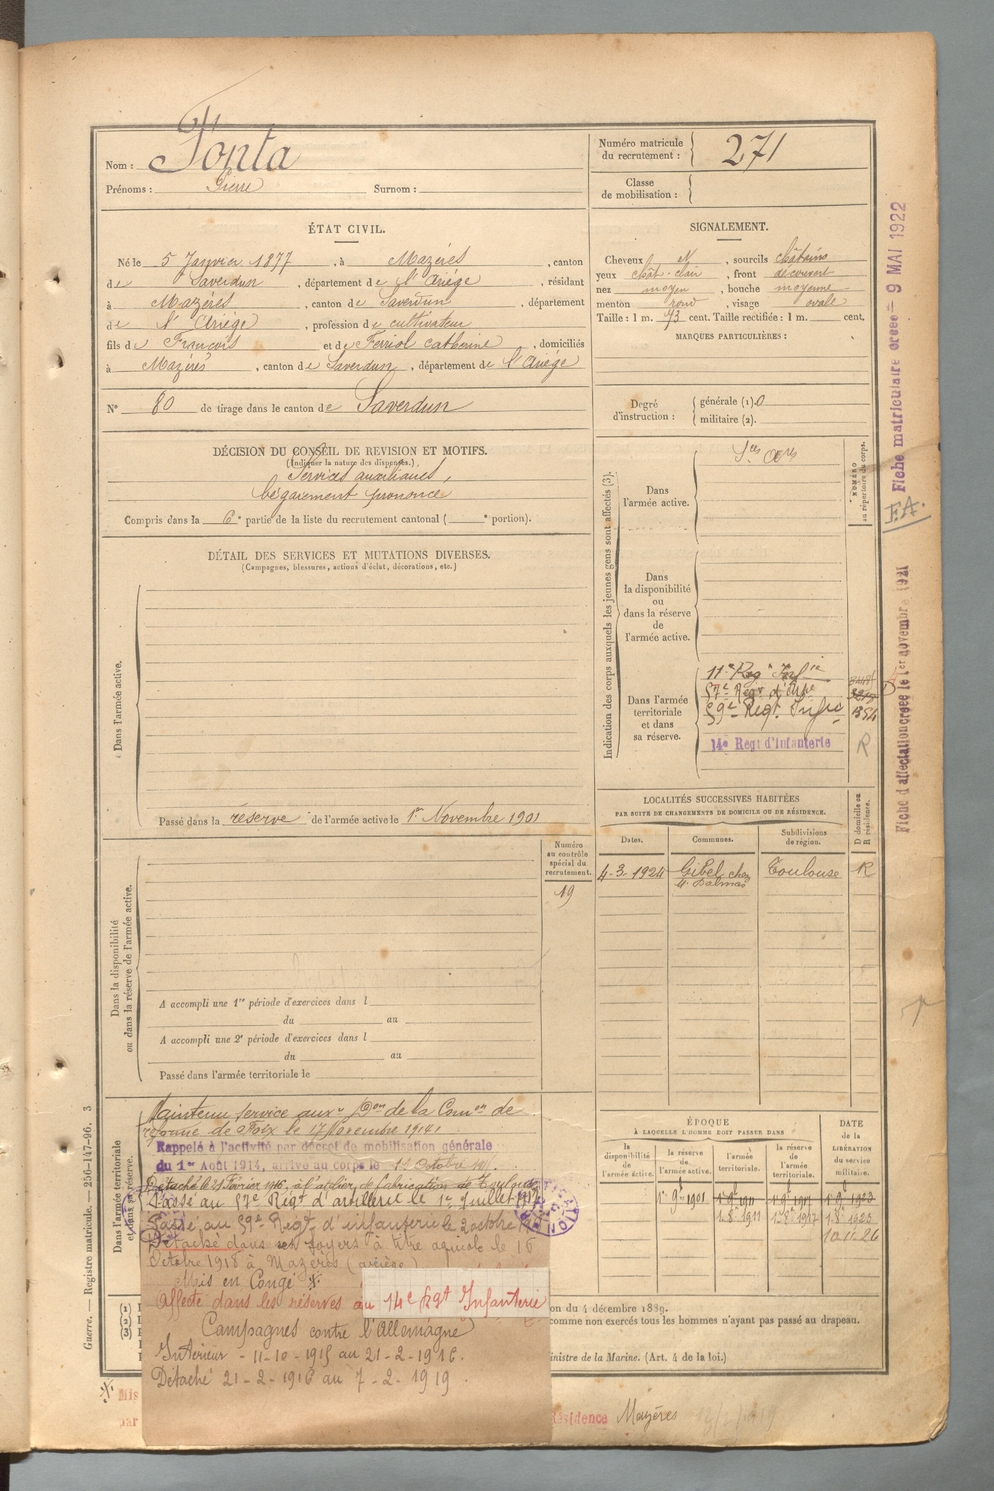 Nom : Fonta
Prénoms : Pierre Surnom :
Numéro matricule du recrutement : 271
Classe de mobilisation :
ÉTAT CIVIL.
Né le 5 Janvier 1877, à Mazères, canton
de Saverdun, département de l'Ariège, résidant
à Mazères, canton de Saverdun, département
de l'Ariège, profession de cultivateur
fils de François et de Ferriol Catherine, domiciliés
à Mazères, canton de Saverdun, département de l'Ariège
N° 80 de tirage dans le canton de Saverdun
SIGNALEMENT.
Cheveux N, sourcils châtains
yeux chât-clair, front découvert
nez moyen, bouche moyenne
menton rond, visage ovale
Taille : 1 m. 73 cent. Taille rectifiée : 1 m. cent.
MARQUES PARTICULIÈRES :
Degré d'instruction : générale (1). 0
militaire (2).
DÉCISION DU CONSEIL DE REVISION ET MOTIFS.
(Indiquer la nature des dispenses.)
Services auxiliaires,
bégaiement prononcé
Compris dans la 6e partie de la liste du recrutement cantonal ( e portion).
DÉTAIL DES SERVICES ET MUTATIONS DIVERSES.
(Campagnes, blessures, actions d'éclat, décorations, etc.)
Dans l'armée active.
Passé dans la réserve de l'armée active le 1er Novembre 1901
Indication des corps auxquels les jeunes gens sont affectés (3).
NUMÉRO au répertoire du corps.
Dans l'armée active.
Dans la disponibilité ou dans la réserve de l'armée active.
Dans l'armée territoriale et dans sa réserve.
57e Régt d'Artie
59e Régt. Infie
14e Régt d'Infanterie R
Numéro au contrôle spécial du recrutement.
19
Dans la disponibilité ou dans la réserve de l'armée active.
A accompli une 1re période d'exercices dans l
du au
A accompli une 2e période d'exercices dans l
du au
Passé dans l'armée territoriale le
LOCALITÉS SUCCESSIVES HABITÉES
PAR SUITE DE CHANGEMENTS DE DOMICILE OU DE RÉSIDENCE.
D domicile ou R résidence.
Dates. Communes. Subdivisions de région.
4-3-1924 Gibel chez M. Dalmas Toulouse R
Dans l'armée territoriale et dans sa réserve.
Maintenu service auxre Don de la Comon de
réforme de Foix le 17 Novembre 1914
Rappelé à l'activité par décret de mobilisation générale
du 1er Août 1914, arrivé au corps le
Détaché le 21 Février 1916, à l'atelier de fabrication de Toulouse
Passé au 57e Régt d'artillerie le 1er Juillet
Passé au 59e Régt d'infanterie le 2 octobre
Détaché dans ses foyers à titre agricole le 16
Octobre 1918 à Mazères (Ariège)
Mis en Congé
Affecté dans les réserves au 14e Rgt Infanterie
Campagnes contre l'Allemagne
Intérieur - 11-10-1915 au 21-2-1916.
Détaché 21-2-1916 au 7-2-1919.
ÉPOQUE
À LAQUELLE L'HOMME DOIT PASSER DANS
la disponibilité de l'armée active.
la réserve de l'armée active.
l'armée territoriale.
la réserve de l'armée territoriale.
DATE de la LIBÉRATION du service militaire.
1er 9bre 1901
10-11-26
on du 4 décembre 1889.
comme non exercés tous les hommes n'ayant pas passé au drapeau.
inistre de la Marine. (Art. 4 de la loi.)
Mis
par
Résidence Mazères
Guerre. — Registre matricule. — 256-147-96. 3
Fiche matriculaire créée = 9 MAI 1922
F.A.
Fiche d'affectation créée le 1er novembre 1921